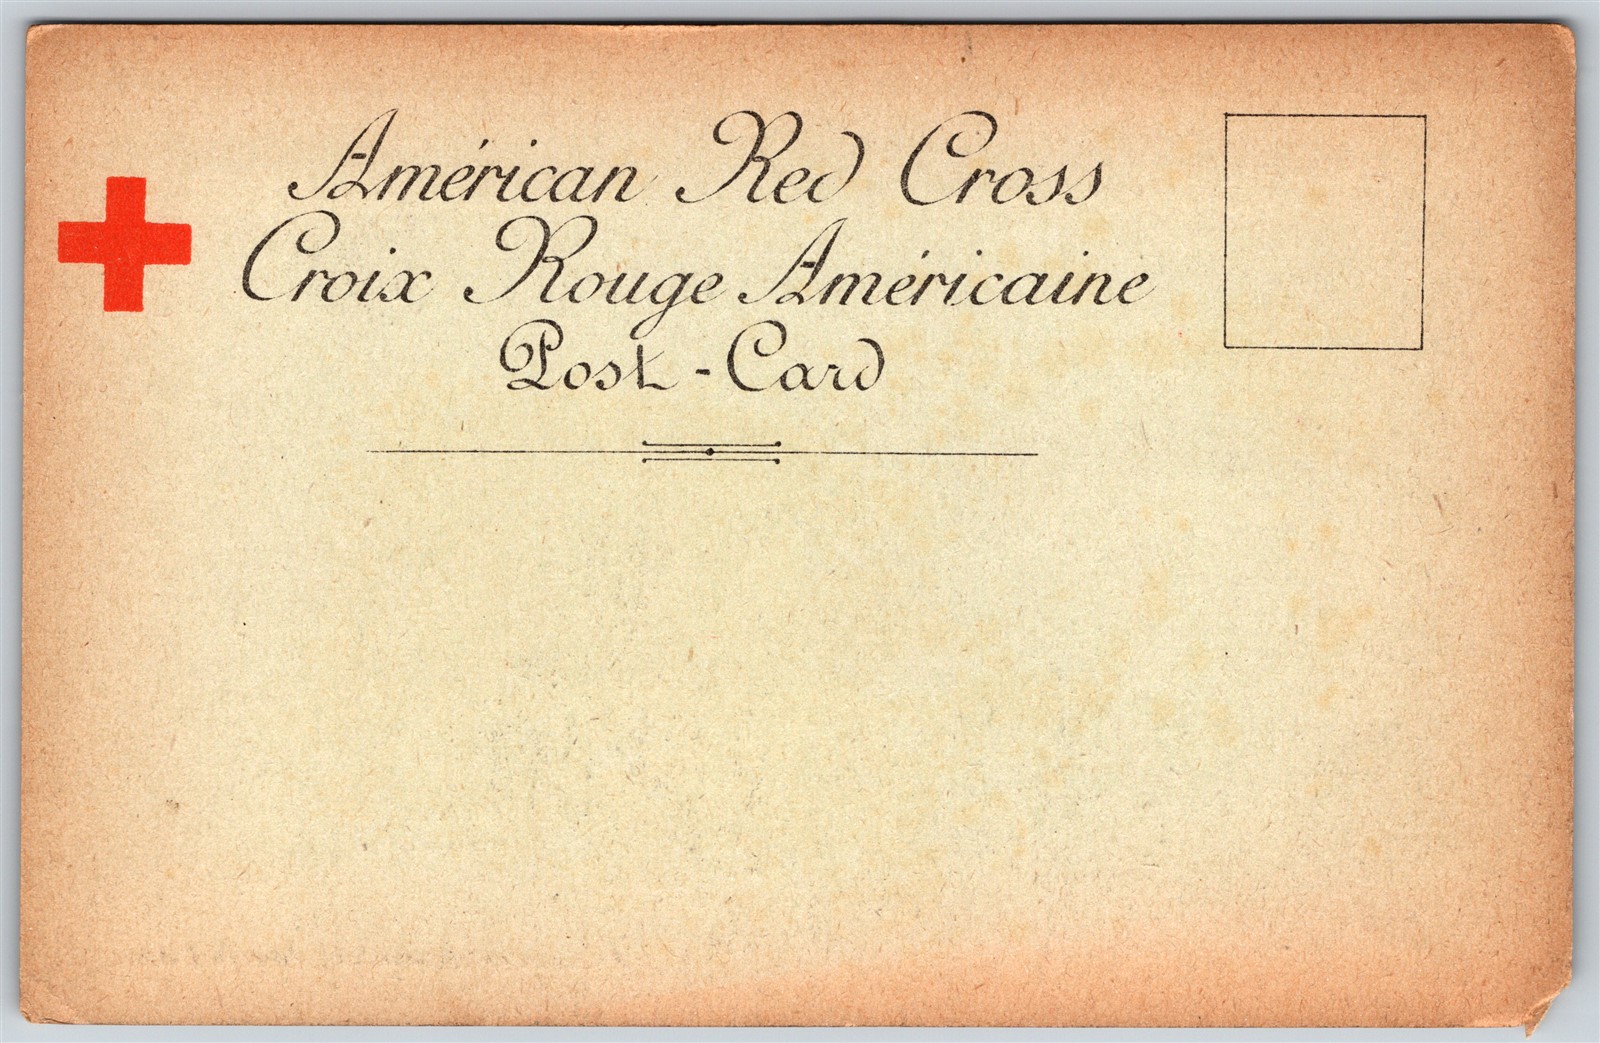 Américan Red Cross
Croix Rouge Américaine
Post-Card